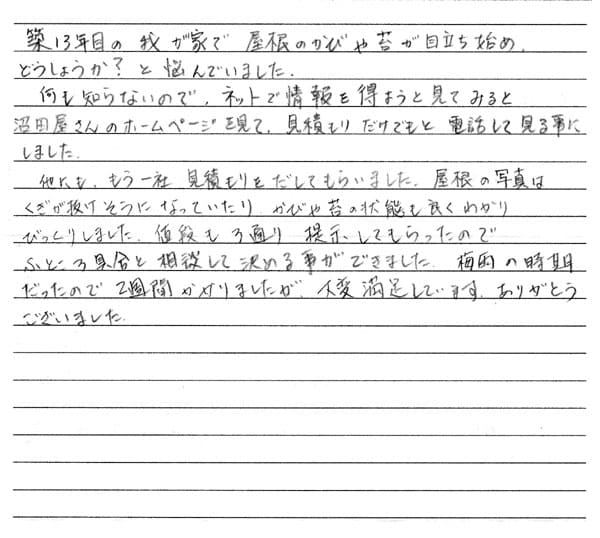 築13年目の我が家で屋根のかびや苔が目立ち始め、
どうしょうか?と悩んでいました。
何も知らないので、ネットで情報を得ようと見てみると
沼田屋さんのホームページを見て、見積もりだけでもと電話して見る事に
しました。
他にも、もう一社見積もりをだしてもらいました。屋根の写真は
くぎが抜けそうになっていたり、かびや苔の状態も良くわかり
びっくりしました。値段も3通り提示してもらったので
ふところ具合と相談して決める事ができました。梅雨の時期
だったので2週間かかりましたが、大変満足しています。ありがとう
ございました。